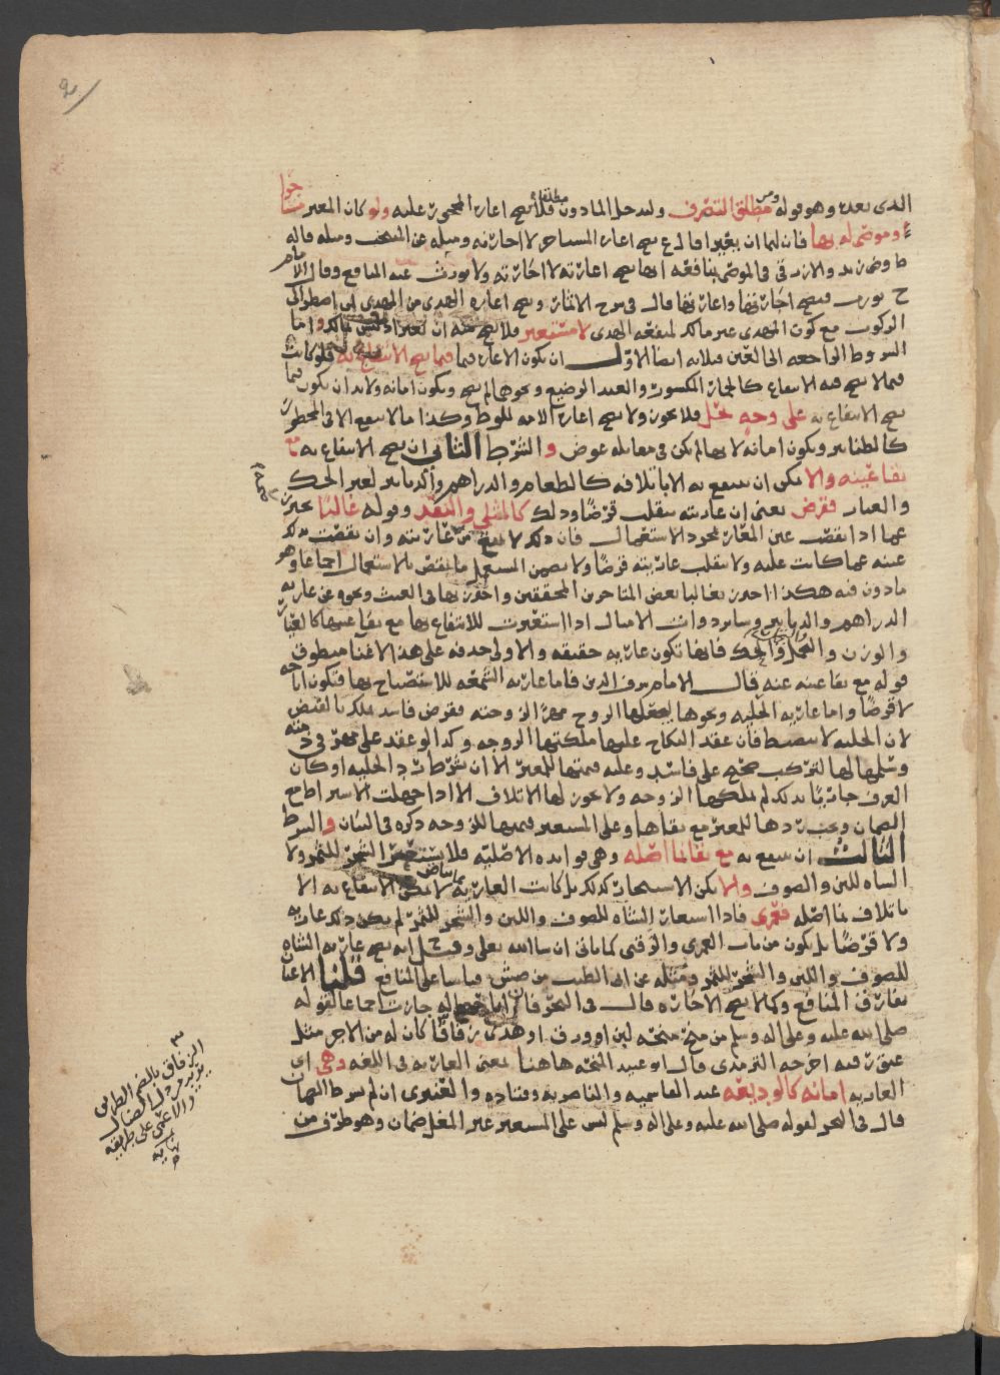 الذي بعده وهو قوله ومن مطلق التصرف وليدخل المأذون مطلقا فلا يصح اعارة المحجور عليه ولو كان المعير مستاجرا
او موصى له بها فان لهما ان يعيرا قال ع يصح اعارة المستاجر لا اجارته ومثله عن المنتخب ومثله قاله
ط وض زيد والازرقي في الموصى بمنافعه انها تصح اعارته لا اجارته ولا يورث عنه المنافع وقال الامام
ح يورث فيصح اجارتها واعارتها قال في شرح الاثمار ويصح اعارة الهدي من المهدي الى اضطر الى
الركوب مع كون المهدي غير مالك لمنفعة الهدي لا مستعير فلا يصح منه ان يعير اذ ليس مالك واما
الشروط الراجعه الى العين فثلاثه ايضا الاول ان يكون الاعارة فيما فيما يصح الانتفاع به فلو كانت
فيما لا يصح فيه الانتفاع كالجمار المكسور والعبد الرضيع ونحوهما لم يصح ويكون امانه ولا بد ان يكون فيما
يصح الانتفاع به على وجه يحل فلا يجوز ولا يصح اعارة الامه للوطء وكذا ما لا ينتفع الا في المحظور
كالطنابير ويكون امانه لانها لم تكن في مقابله عوض والشرط الثاني ان يصح الانتفاع به مع
بقا عينه والا يمكن ان ينتفع به الا باتلافه كالطعام والدراهم والدنانير لغير الحك
والعيار فقرض يعني ان عاريته ينقلب قرضا وذلك كالمثلي والنقد وقوله غالبا يحترز
عما اذا نقصت عين المعار بمجرد الاستعمال فان ذلك لا يمنع من عاريته وان نقصت بذلك
عينه عما كانت عليه ولا ينقلب عاريته قرضا ولا يضمن المستعير ما ينقص بالاستعمال اجماعا وهو
ماذون فيه هكذا احترز بغالبا بعض المتاخرين المحققين واحترز بها في الغيث ونحوه عن عاريه
الدراهم والدنانير وساير ذوات الامثال اذا استعيرت للانتفاع بها مع بقا عينها كالعيار
والوزن والتجمل والحك فانها تكون عاريه حقيقه والاولى حذفه على هذا لاغنا منطوق
قوله مع بقا عينه عنه قال الامام شرف الدين فاما عاريه الشمعه للاستصباح بها فتكون اباحه
لا قرضا واما عاريه الحليه ونحوها يجعلها الزوج مهرا لزوجته فقرض فاسد يملك بالقبض
لان الحليه لا تنضبط فان عقد النكاح عليها ملكتها الزوجه وكذا لو عقد على مهر في ذمته
وسلمها لها لترتب صحيح على فاسد وعليه قيمتها للمعير الا ان شرط رد الحليه او كان
العرف جاريا بذلك لم تملكها الزوجه ولا يجوز لها الاتلاف الا اذا جهلت الاشتراط مع
الضمان ويجب ردها للمعير مع بقاها وعلى المستعير قيمتها للزوجه ذكره في البيان والشرط
الثالث ان ينتفع به مع بقا نما اصله وهي فوايده الاصليه فلا يستعير الشجر للثمر ولا
الشاه للبن والصوف والا يكن الاستعاره كذلك بل كانت العاريه لما لا يمكن الانتفاع به الا
باتلاف نما اصله فعمرى فاذا استعار الشاه للصوف واللبن والشجر للثمر لم يكن ذلك عاريه
ولا قرضا بل يكون من باب العمرى والرقبى كما ياتي ان شا الله تعلى وقيل انه يصح عاريه الشاه
للصوف واللبن والشجر للثمر ومثله عن ابي الطيب من صش قياسا على المنافع قلنا الاعيا
تفارق المنافع وكما لا يصح الاجاره قال في البحر فان اباحها له جازت اجماعا لقوله
صلى الله عليه وعلى اله وسلم من منح منحه لبن او ورق او هدى زقاقا كان له من الاجر مثل
عتق رقبه اخرجه الترمذي قال ابو عبيد المنحه هاهنا بمعنى العاريه في اللغه وهي اي
العاريه امانه كالوديعه عند القاسميه والناصريه وقتاده والعنبري ان لم يشرط الضمان
قال في البحر لقوله صلى الله عليه وعلى اله وسلم ليس على المستعير غير المغل ضمان وهو طرف من
الزقاق بالضم الطريق
يريد من دل الضال
والاعمى على طريقه
نهايه